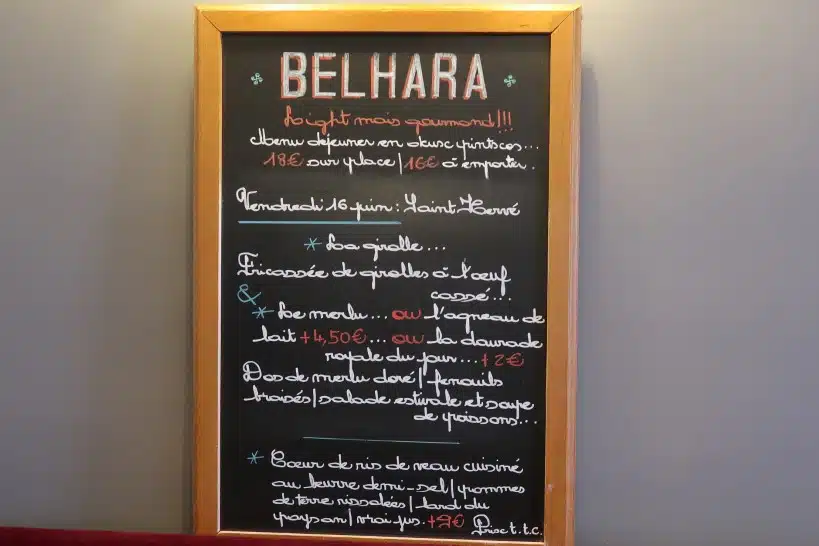 BELHARA
Light mais gourmand!!!
Menu déjeuner en deux
18€ sur place | 16€ à emporter.
Vendredi 16 juin : Saint-Hervé
* La girolle...
Fricassée de girolles à l'œuf
cassé...
&
* Le merlu... ou l'agneau de
lait +4,50€... ou la daurade
royale du jour... +2€
Dos de merlu doré | fenouils
braisés | salade estivale et soupe
de poissons...
* Cœur de ris de veau cuisiné
au beurre demi-sel | pommes
de terre rissolées | lard du
paysan | vrai jus. Prix t.t.c.